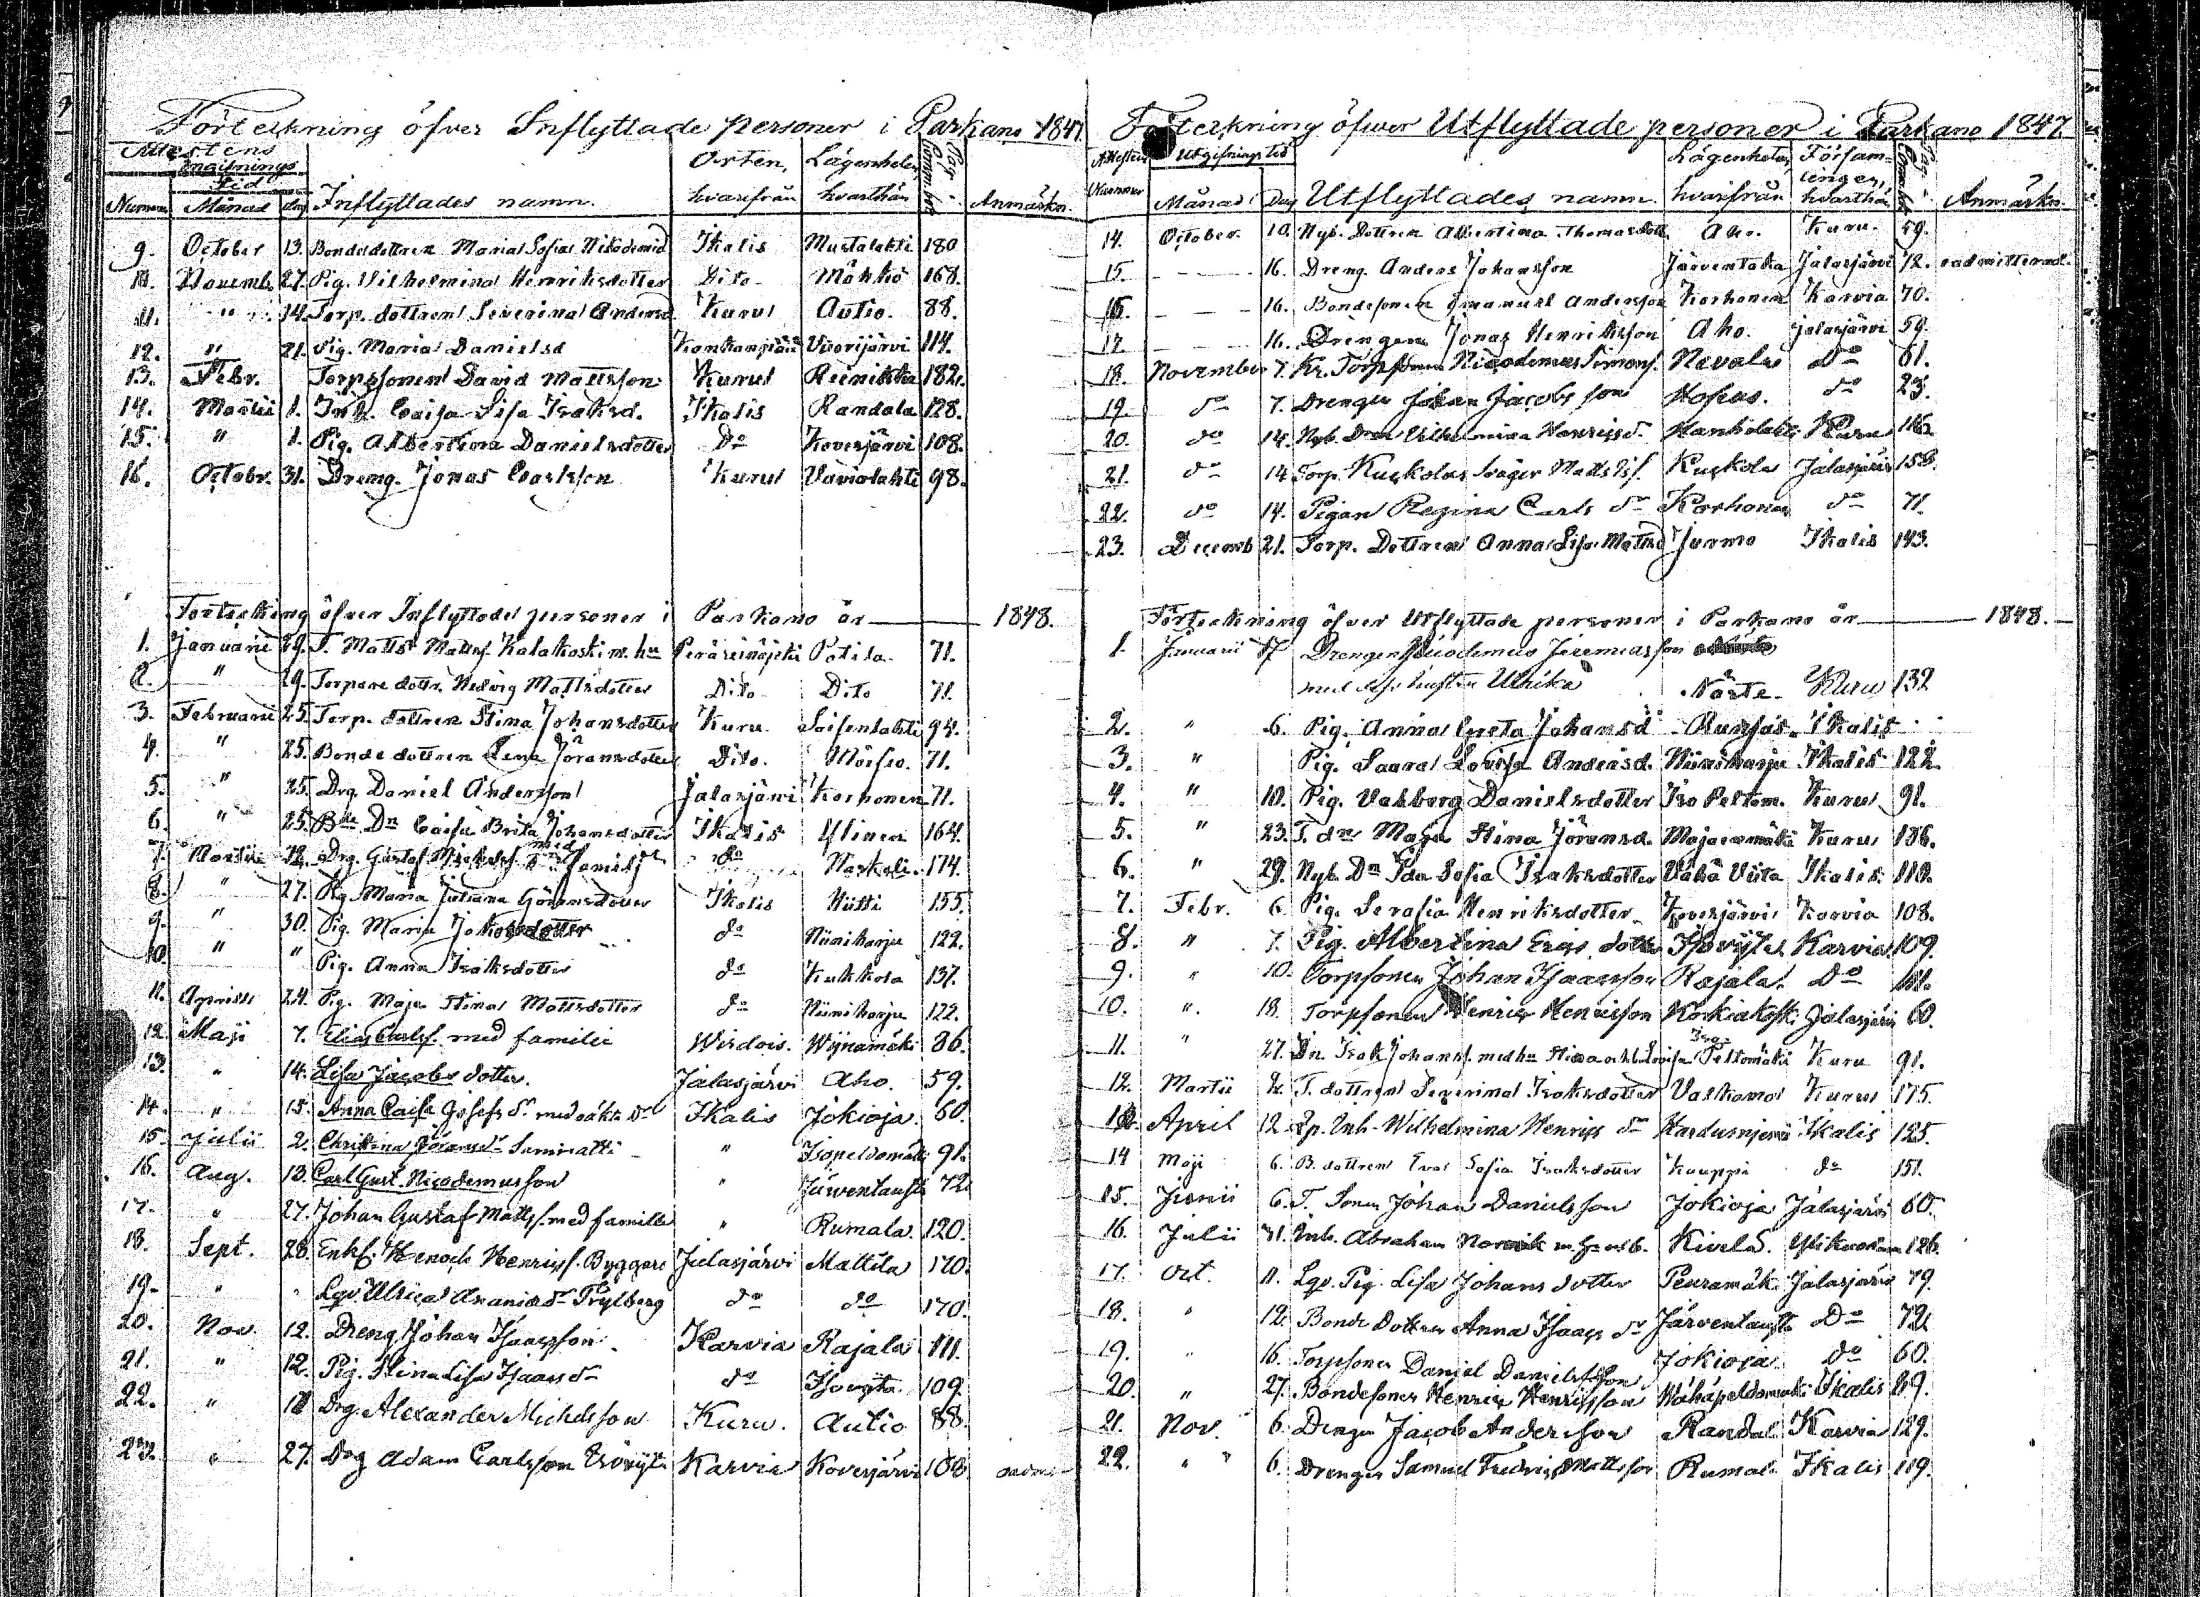 Förteckning öfver Inflyttade personer i Parkano 1847.
Attestens
Ingifnings
Tid
Orten,
Lägenheten
Pag. i Comm. bok
Nummer
Månad
dag
Inflyttades namn.
hvarifrån
hvarthän
Anmärkn.
9. October 13. Bondedottren Maria Sofia Nikodemid Ikalis Mustalahti 180
10. Novemb. 27. Pig. Vilhelmina Henriksdotter Dito Möhkö 168.
11. " 14. Torp. dottren Severina Andersd Kuru Autio. 88.
12. " 21. Pig. Maria Danielsd Kankanpää Vuorijärvi 114.
13. Febr. Torpsonen David Mattsson Kuru Reinikka 182.
14. Martii 1. Inh. Caisa Lisa Isaksd. Ikalis Randala 128.
15. " 1. Pig. Albertina Danielsdotter Do Kovesjärvi 108.
16. Octobr. 31. Dreng. Jonas Carlsson Kuru Vaviolahti 98.
Förteckning öfver Inflyttade personer i Parkano år 1848.
1. Januarii 29. T. Matts Mattss Kalakoski m. hu Peräseinäjoki Potila. 71.
2. " 29. Torpare dottr. Hedvig Mattsdotter Dito Dito 71.
3. Februarii 25. Torp. dottren Stina Johansdotter Kuru Soisenlahti 94.
4. " 25. Bonde dottren Lena Göransdotter Dito. 71.
5. " 25. Drg Daniel Andersson Jalasjärvi Korhonen 71.
6. " 25. Bde Dn Caisa Brita Johansdotter Ikalis Ylinen 164.
7. Martii 12. Drg. Gustaf med familj do 174.
8. " 27. Pig. Maria Juliana Göransdotter Ikalis Hütti 155.
9. " 30. Pig. Maria Jakobsdotter do Niiniharju 122.
10. " " Pig. Anna Isaksdotter do Kuhkola 137.
11. Aprill 24. Pig. Maja Stina Mattsdotter do Niiniharju 122.
12. Maji 7. Elias Carlss. med familie Wirdois. Wijnamäki 86.
13. " 14. Lisa Jacobs dotter. Jalasjärvi Aho. 59.
14. " 15. Anna Caisa Josefs dr med oäkta dr Ikalis Jokioja. 60.
15. Julii 2. Christina Göransdr Sammatti " Isopeldomäki 91.
16. Aug. 13. Carl Gust. Nicodemusson " Järwentausta 72
17. " 27. Johan Gustaf Mattss. med famillie " Rumala. 120.
18. Sept. 28. Enkl. Henoch Henrikss. Byggare Jalasjärvi Mattila 170.
19. " " Lgv. Ulrica Ananiædr Trylberg do do 170.
20. Nov. 12. Dreng Johan Isaacsson Karvia Rajala 111.
21. " 12. Pig. Stina Lisa Isaacsdr do 109.
22. " 18 Drg. Alexander Michelsson Kuru. Autio 88.
23. " 27. Drg Adam Carlsson Karvia Kovesjärvi 108
Förteckning öfwer Utflyttade personer i Parkano 1847.
Attestens
Utgifnings tid
Lägenheten
Församlingen,
Pag. i Comm. bok
Nummer
Månad
Dag
Utflyttades namn.
hvarifrån
hvarthän
Anmärkn.
14. October. 10. Nyb. Dottren Albertina Thomasdott Aho. Kuru. 59.
15. - - - 16. Dreng. Anders Johansson Järventaka Jalasjärvi 72. radmitterad.
16. - - - 16. Bondesonen Emanuel Andersson Korhonen Karvia 70.
17. - - - 16. Drengen Jonas Henriksson Aho. Jalasjärvi 59.
18. November 7. Kr. Torpsonen Nicodemus Simons. Nevala Do 61.
19. do 7. Drengen Johan Jacobsson Hosias. do 23.
20. do 14. Nyb. Dren Vilhelmina Henrixd. Kuru
21. do 14 Torp. Kuskolas Svåger Matts Kuskola Jalasjärvi 158.
22. do 14. Pigan Regina Carls dr Korhonen do 71.
23. Decemb 21. Torp. Dottren Anna Lisa Mattsd Jurmo Ikalis 143.
Förteckning öfver Utflyttade personer i Parkano år 1848.
1. Januarii 17 Drengen Nicodemus Jeremiasson
med dess hustru Ulrika Närte. Kuru 132
2. " 6. Pig. Anna Greta Johansd Ikalis
3. " Pig. Saara Lovisa Andersd. Niiniharju Ikalis 122.
4. " 10. Pig. Valborg Danielsdotter Iso Peltom. Kuru 91.
5. " 23. T. dn Maja Stina Jöransd. Majacammäki Kuru 136.
6. " 29. Nyb. Dn Ida Sofia Isaksdotter Vähä Viita Ikalis 110.
7. Febr. 6. Pig. Serafia Henriksdotter Kovesjärvi Karvia 108.
8. " 7. Pig. Albertina Erics dotter Karvia 109.
9. " 10. Torpsonen Johan Isaacsson Rajala. Do 111.
10. " 18. Torpsonen Henric Henricsson Korkiakoski Jalasjärvi 60.
11. " 27. Dn. Isak Johanss. med hu Stina och Lovisa Iso Peltomäki Kuru 91.
12. Martii 2. T. dottren Severina Isaksdotter Valkama Kuru 175.
13. April 12 Inh. Wilhelmina Henrics dr Ikalis 125.
14 Maji 6. B. dottren Eva Sofia Isaksdotter Kauppi do 151.
15. Junii 6. T. Sonen Johan Danielsson Jokioja Jalasjärvi 60.
16. Julii 31. Inh. Abraham Kivelä. 126.
17. Oct. 11. Lgv. Pig. Lisa Johans dotter Peuramäk. Jalasjärvi 79.
18. " 12. Bonde Dottren Anna Isaacs dr Järventausta Do 72
19. " 16. Torpsonen Daniel Danielsson Jokioja do 60.
20. " 27. Bondesonen Henric Henricsson Wähäpeldomäki Ikalis 89.
21. Nov. 6. Drengen Jacob Andersson Randal Karvia 129.
22. " " 6. Drengen Samuel Fredric Mattsson Rumal. Ikalis 119.